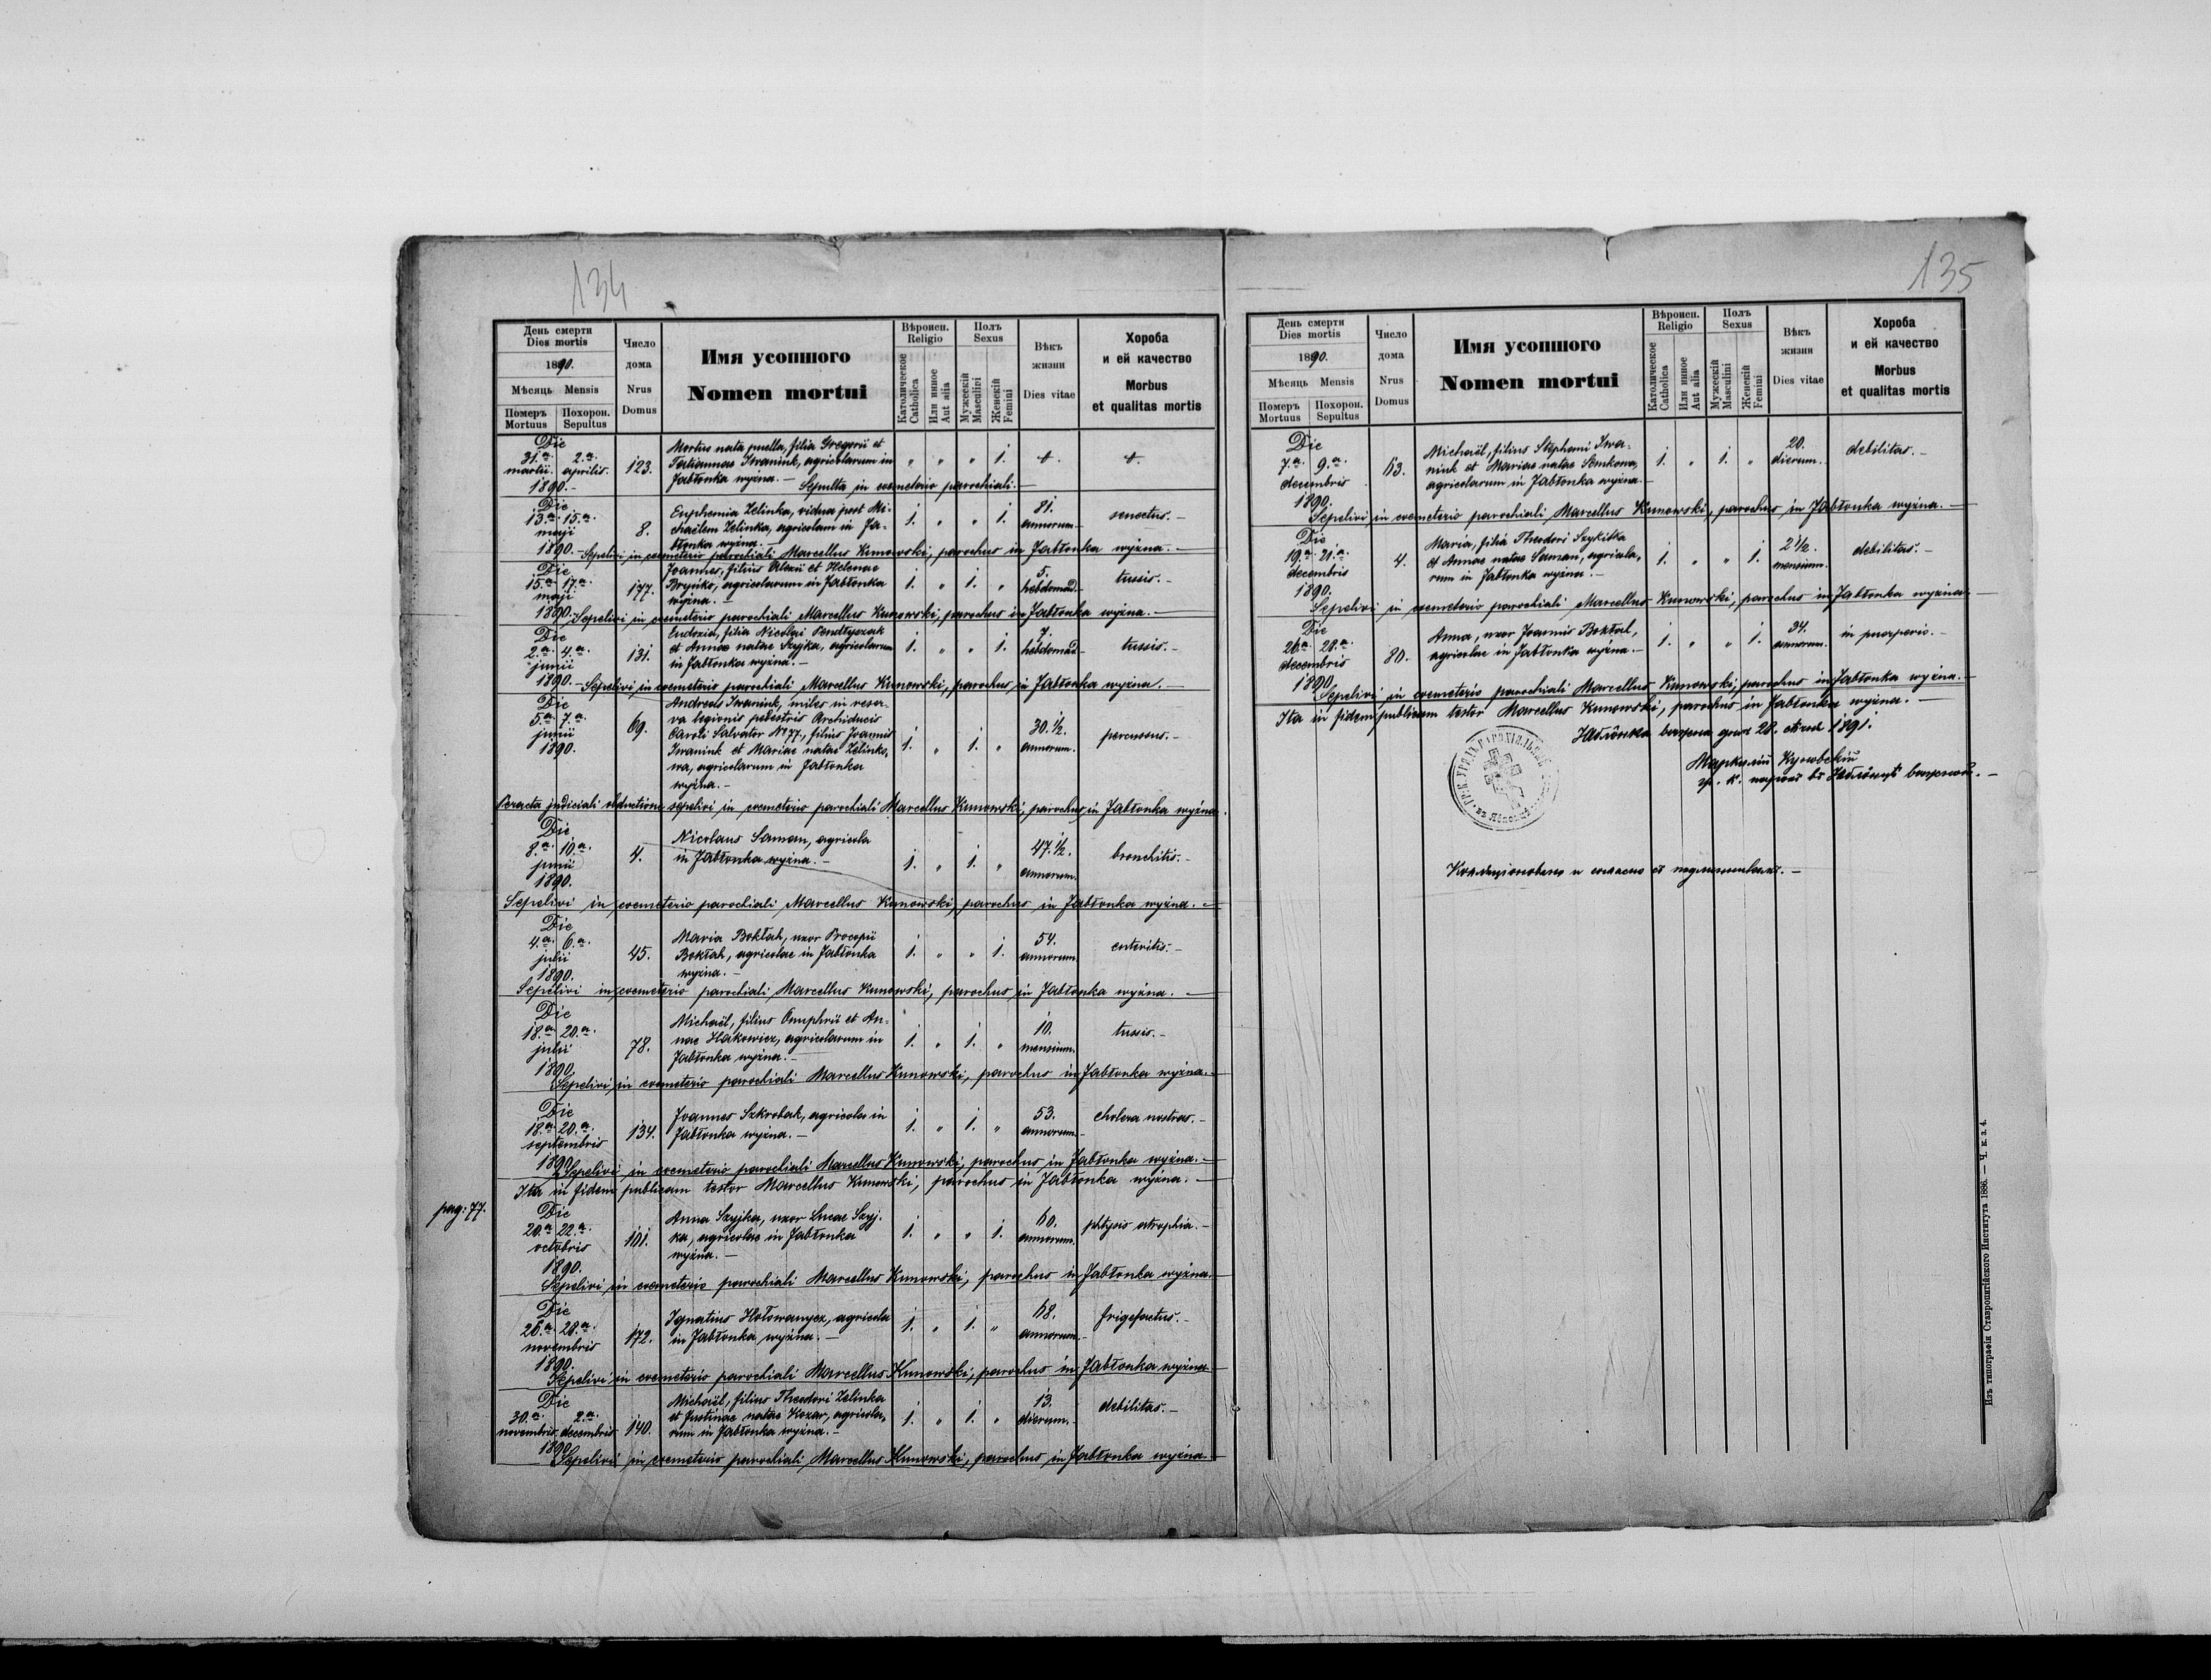 134
День смерти
Dies mortis
1890.
Мѣсяць Mensis
Померъ Mortuus
Похорон. Sepultus
Число дома
Nrus Domus
Имя усопшого
Nomen mortui
Вѣроисп. Religio
Католическое Catholica
Или инное Aut alia
Полъ Sexus
Мужескій Masculini
Женскій Femini
Вѣкъ жизни
Dies vitae
Хороба и ей качество
Morbus et qualitas mortis
Die
31.a 2.a
martii. aprilis.
1890.-
123.
Mortua nata puella, filia Gregorii et
Tatiannae Iwanink, agricolarum in
Jabłonka wyżna. — Sepulta in coemeterio parochiali. —
" " " 1.
Die
13.a 15.a
maji
8.
Euphemia Zelinka, vidua post Mi-
chaëlem Zelinka, agricolam in Ja-
błonka wyżna. —
1. " " 1.
81. annorum
senectus. -
1890. - Sepelivi in coemeterio parochiali Marcellus Kunowski, parochus in Jabłonka wyżna. -
Die
15.a 17.a
maji
177.
Joannes, filius Alexii et Helenae
Bryńko, agricolarum in Jabłonka
wyżna. —
1. " 1. "
5. hebdomad.
tussis. -
1890. - Sepelivi in coemeterio parochiali Marcellus Kunowski, parochus in Jabłonka wyżna. -
Die
2.a 4.a
junii
131.
Eudoxia, filia Nicolai Pendłyszak
et Annae natae Szyjka, agricolarum
in Jabłonka wyżna. -
1. " " 1.
7. hebdomad
tussis. -
1890. - Sepelivi in coemeterio parochiali Marcellus Kunowski, parochus in Jabłonka wyżna. -
Die
5.a 7.a
junii
1890.
69.
Andreas Iwanink, miles in reser-
va legionis pedestris Archiducis
Caroli Salvator № 77, filius Joannis
Iwanink et Mariae natae Zelinko,
wa, agricolarum in Jabłonka
wyżna. -
1. " 1. "
30.½. annorum.
percussus. -
Peracta judiciali obductione sepelivi in coemeterio parochiali Marcellus Kunowski, parochus in Jabłonka wyżna.
Die
8.a 10.a
junii
1890.
4.
Nicolaus Saman, agricola
in Jabłonka wyżna. -
1. " 1. "
47.½. annorum.
bronchitis. -
Sepelivi in coemeterio parochiali Marcellus Kunowski, parochus in Jabłonka wyżna. -
Die
4.a 6.a
julii
1890.
45.
Maria Bokłah, uxor Procopii
Bokłah, agricolae in Jabłonka
wyżna. -
1. " " 1.
54. annorum
enteritis. -
Sepelivi in coemeterio parochiali Marcellus Kunowski, parochus in Jabłonka wyżna. -
Die
18.a 20.a
julii
1890.
78.
Michaël, filius Onuphrii et An-
nae Hakowicz, agricolarum in
Jabłonka wyżna. -
1. " 1. "
10. mensium.
tussis. -
Sepelivi in coemeterio parochiali Marcellus Kunowski, parochus in Jabłonka wyżna. -
Die
18.a 20.a
septembris
134.
Joannes Szkrobak, agricola in
Jabłonka wyżna. -
1. " 1. "
53. annorum.
cholera nostras. -
1890. Sepelivi in coemeterio parochiali Marcellus Kunowski, parochus in Jabłonka wyżna. -
Ita in fidem publicam testor Marcellus Kunowski, parochus in Jabłonka wyżna. -
pag: 77.
Die
20.a 22.a
octobris
1890.
101.
Anna Szyjka, uxor Lucae Szyj-
ka, agricolae in Jabłonka
wyżna. -
1. " " 1.
60. annorum.
phtysis atrophia. -
Sepelivi in coemeterio parochiali Marcellus Kunowski, parochus in Jabłonka wyżna.
Die
26.a 28.a
novembris
1890.
172.
Ignatius Hołowanycz, agricola
in Jabłonka wyżna. -
1. " 1. "
68. annorum.
frigefactus. -
Sepelivi in coemeterio parochiali Marcellus Kunowski, parochus in Jabłonka wyżna
Die
30.a 2.a
novembris decembris
1890.
140.
Michaël, filius Theodori Zelinka
et Justinae natae Kozar, agricola,
rum in Jabłonka wyżna. -
1. " 1. "
13. dierum.
debilitas. -
Sepelivi in coemeterio parochiali Marcellus Kunowski, parochus in Jabłonka wyżna.
135
День смерти
Dies mortis
1890.
Мѣсяць Mensis
Померъ Mortuus
Похорон. Sepultus
Число дома
Nrus Domus
Имя усопшого
Nomen mortui
Вѣроисп. Religio
Католическое Catholica
Или инное Aut alia
Полъ Sexus
Мужескій Masculini
Женскій Femini
Вѣкъ жизни
Dies vitae
Хороба и ей качество
Morbus et qualitas mortis
Die
7.a 9.a
decembris
1890.
63.
Michaël, filius Stephani Iwa-
nink et Mariae natae Senkowa,
agricolarum in Jabłonka wyżna. -
1. " 1. "
20. dierum.
debilitas. -
Sepelivi in coemeterio parochiali Marcellus Kunowski, parochus in Jabłonka wyżna. -
Die
19.a 21.a
decembris
1890.
4.
Maria, filia Theodori Szykitka
et Annae natae Saman, agricola,
rum in Jabłonka wyżna. -
1. " " 1.
2½. mensium.
debilitas. -
Sepelivi in coemeterio parochiali Marcellus Kunowski, parochus in Jabłonka wyżna. -
Die
26.a 28.a
decembris
1890.
80.
Anna, uxor Joannis Bokłah,
agricolae in Jabłonka wyżna. -
1. " " 1.
34. annorum.
in puerperio. -
Sepelivi in coemeterio parochiali Marcellus Kunowski, parochus in Jabłonka wyżna. -
Ita in fidem publicam testor Marcellus Kunowski, parochus in Jabłonka wyżna. -
Яблонка выжна дня 28. 1891.
Маркеллій Куновскій
гр. к. парохъ въ Яблонцѣ выжной. -
Коллаціоновано и согласно съ подлинникомъ. -
Изъ типографіи Ставропигійского Института 1886. — Ч. к. з. 4.